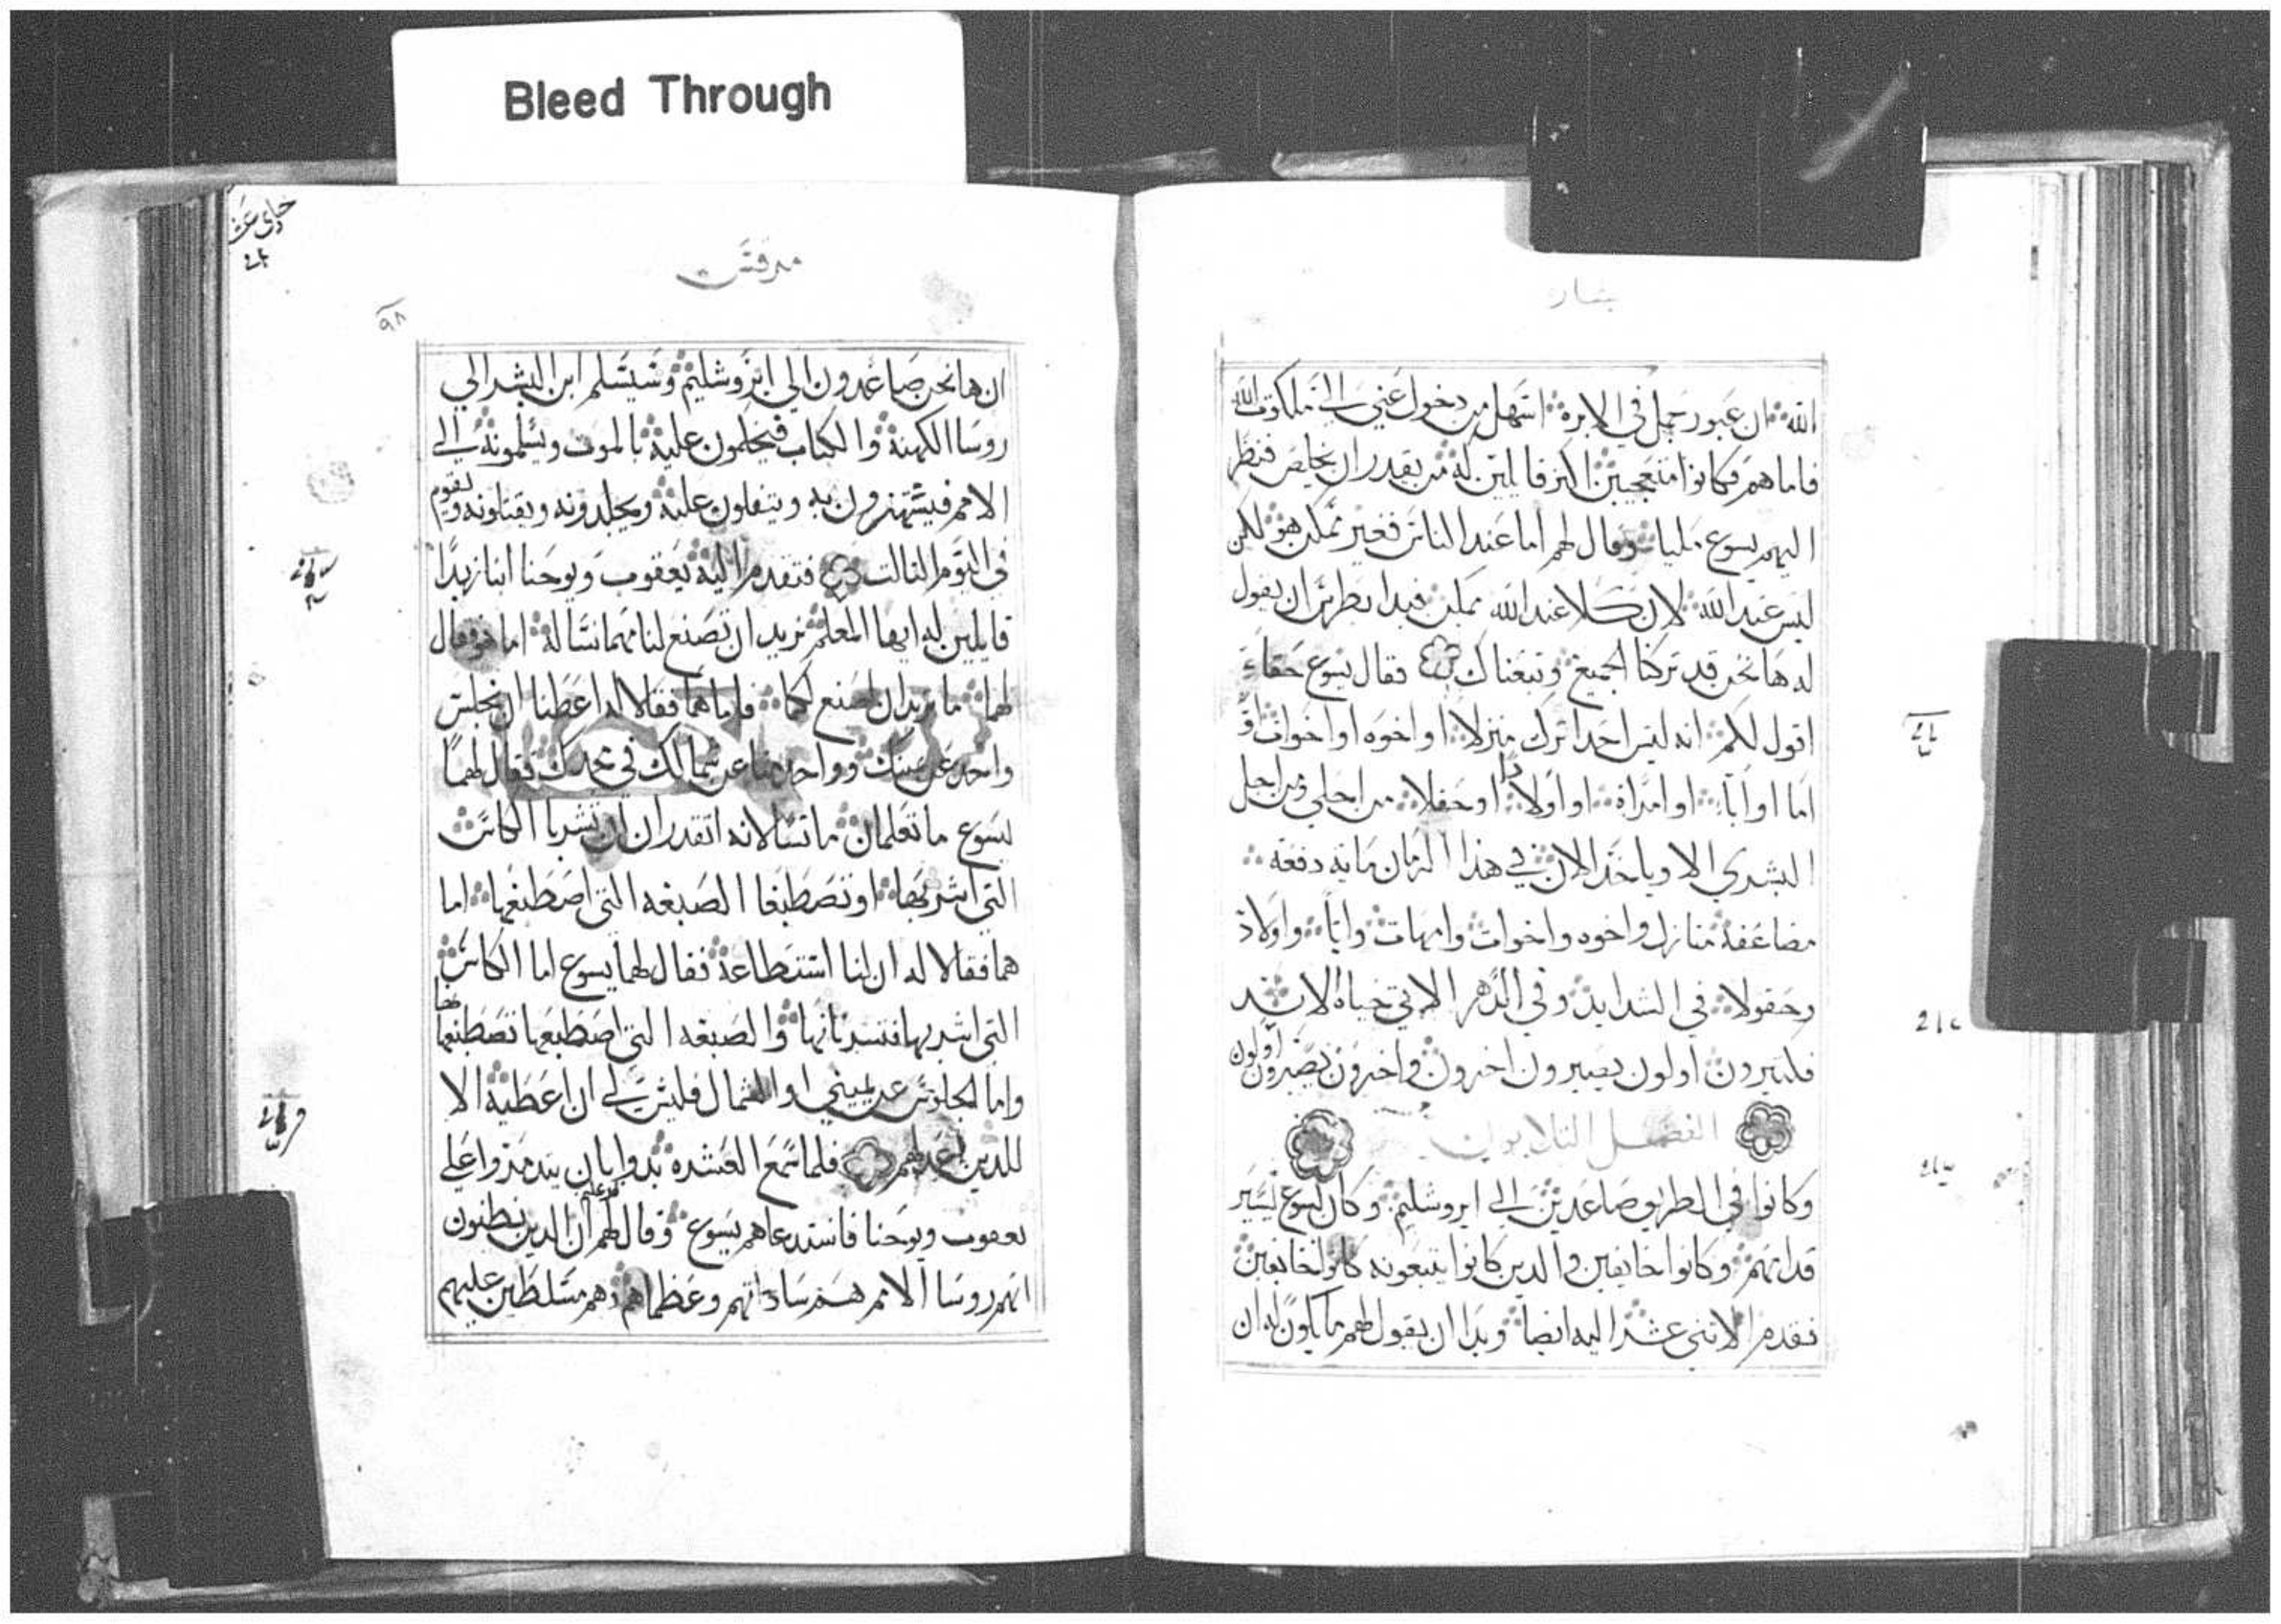 Bleed Through
بشاره
الله ان عبور جمل في الابرة اسهل من دخول غني الى ملكوت الله
فاما هم فكانوا متعجبين اكثر قايلين له من يقدر ان يخلص فنظر
اليهم يسوع مليا وقال لهم اما عند الناس فغير ممكن هو لكن
ليس عند الله لان كلا عند الله ممكن فبدا بطرس ان يقول
له ها نحن قد تركنا الجميع وتبعناك فقال يسوع حقا
اقول لكم انه ليس احدا ترك منزلا او اخوه او اخوات او
اما او ابا او امراة او اولادا او حقلا من اجلي ومن اجل
البشري الا وياخذ الان في هذا الزمان ماية دفعه
مضاعفة منازل واخوه واخوات وامهات وابا واولاد
وحقولا في الشدايد وفي الدهر الاتي حياة الابد
فكثيرون اولون يصيرون اخرون واخرون يصيرون اولون
الفصل الثلاثون
وكانوا في الطريق صاعدين الى ايروشليم وكان يسوع يسير
قدامهم وكانوا خايفين والدين كانوا يتبعونه كانوا خايفين
فقدم الاثني عشر اليه ايضا وبدا ان يقول لهم ما يكون له ان
حادي عشر
مرقس
٩٨
ان ها نحن صاعدون الي ايروشليم وسيسلم ابن البشر الي
روسا الكهنة والكتاب فيحكمون عليه بالموت ويسلمونه الى
الامم فيستهزون به ويتفلون عليه ويجلدونه ويقتلونه ويقوم
في اليوم الثالث فتقدم اليه يعقوب ويوحنا ابنا زبدا
قايلين له ايها المعلم نريد ان تصنع لنا مهما نساله اما هو وقال
لهما ما تريدان اصنع لكما فاما هما فقالا له اعطنا ان نجلس
واحد عن يمينك وواحد منا عن شمالك في مجدك فقال لهما
يسوع ما تعلمان ما تسالانه اتقدران ان تشربا الكاس
التي اشربها او تصطبغا الصبغه التي اصطبغها اما
هما فقالا له ان لنا استطاعة فقال لهما يسوع اما الكاس
التي اشربها فتشربانها والصبغه التي اصطبغها تصطبغاها
واما الجلوس عن يميني او الشمال فليس لي ان اعطيه الا
للدين اعد لهم فلما سمع العشره بدوا بان يتدمروا على
يعقوب ويوحنا فاستدعاهم يسوع وقال لهم ان الدين يظنون
انهم روسا الامم هم ساداتهم وعظماهم هم مسلطين عليهم